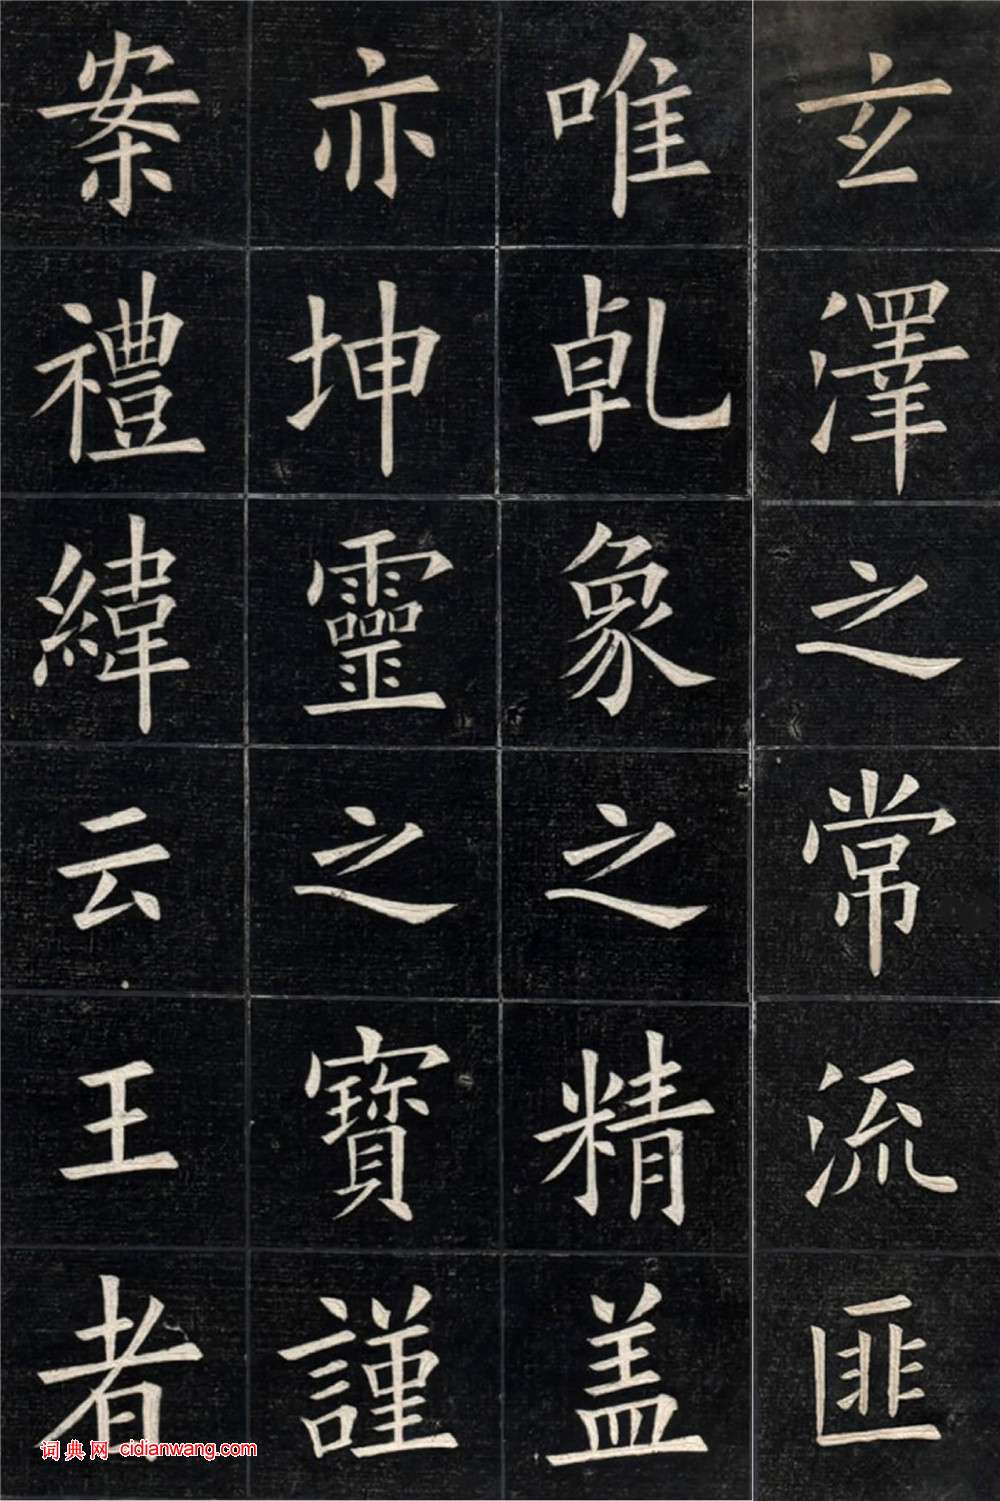 玄澤之常流匪
唯乹象之精盖
亦坤靈之寶謹
案禮緯云王者
词典网 cidianwang.com